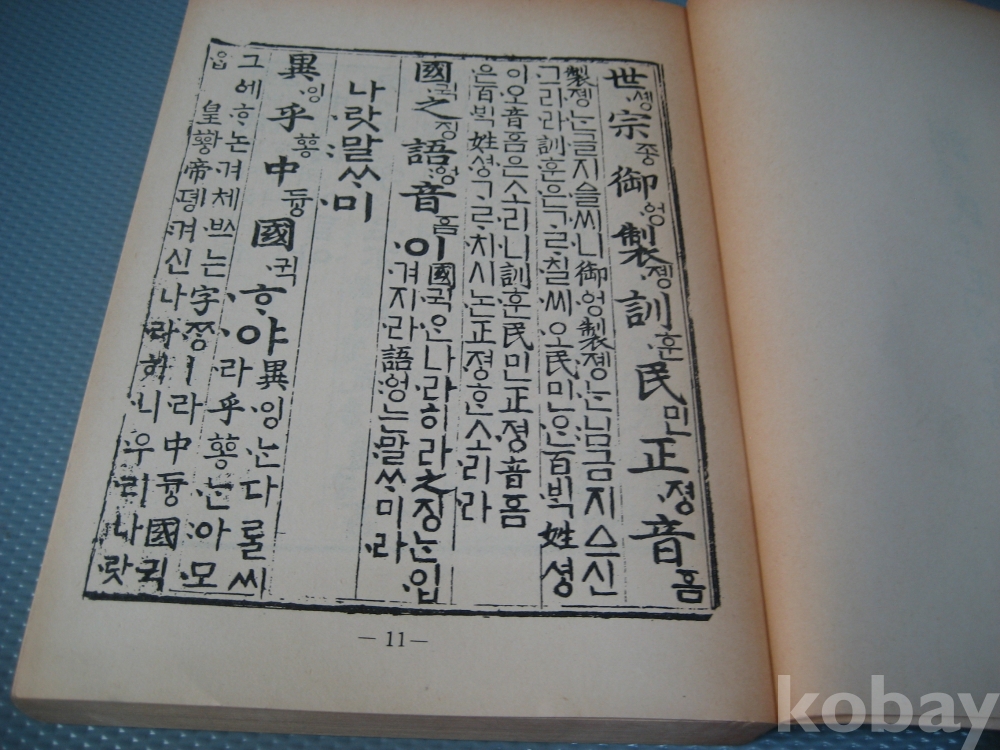 世솅宗종御ᅌᅥᆼ製졩訓훈民민正졍音ᅙᅳᆷ
製졩ᄂᆞᆫ글지ᅀᅳᆯ씨니御ᅌᅥᆼ製졩ᄂᆞᆫ님금지ᅀᅳ신
그리라訓훈은ᄀᆞᄅᆞ칠씨오民민ᄋᆞᆫ百ᄇᆡᆨ姓셩
이오音ᅙᅳᆷ은소리니訓훈民민正졍音ᅙᅳᆷ
은百ᄇᆡᆨ姓셩ᄀᆞᄅᆞ치시논正졍ᄒᆞᆫ소리라
國귁之징語ᅌᅥᆼ音ᅙᅳᆷ이
國귁ᄋᆞᆫ나라히라之징ᄂᆞᆫ입
겨지라語ᅌᅥᆼ는말ᄊᆞ미라
나랏말ᄊᆞ미
異잉乎ᅘᅩᆼ中듕國귁ᄒᆞ야
異잉ᄂᆞᆫ다ᄅᆞᆯ씨
라乎ᅘᅩᆼᄂᆞᆫ아모
그ᅌᅦᄒᆞ논겨체ᄡᅳ는字ᄍᆞᆼㅣ라中듕國귁
皇ᅘᅪᆼ帝뎽겨신나라히니우리나랏
— 11 —
kobay